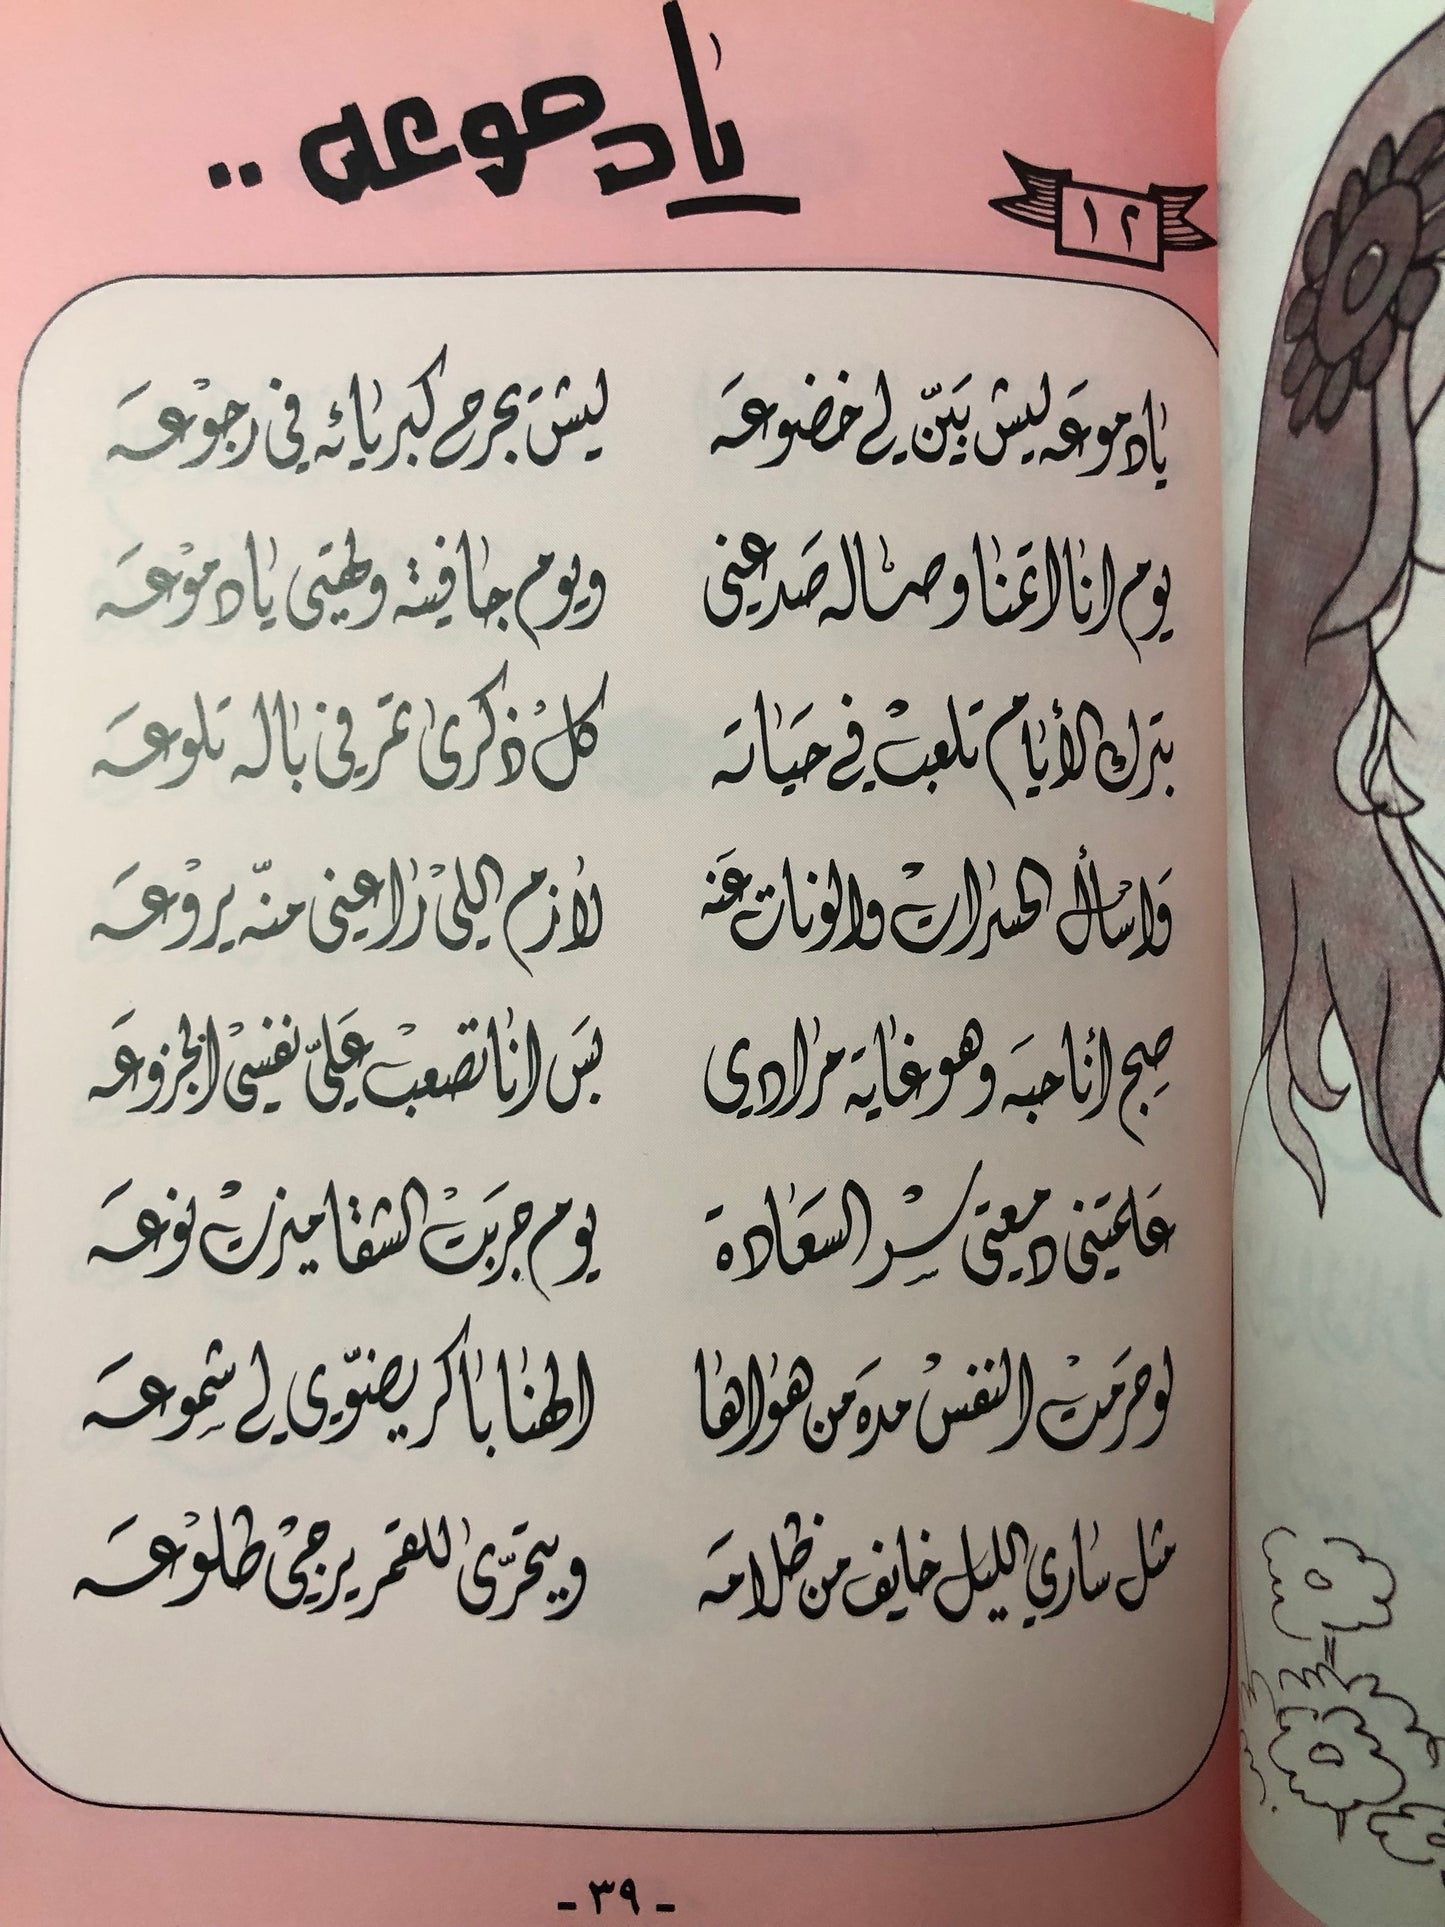 يا دموعه ..
١٢
يا دموعه ليش بَيّن لي خضوعه ليش بجرح كبريائه في رجوعه
يوم انا اتمنا وصاله صد عني ويوم جافيته ولهتي يا دموعه
بترك الأيام تلعب في حياته كل ذكرى تمر في باله تلوعه
واسأل الحسرات والونات عنه لازم اللي راعني منّه يروعه
صج أنا حبه وهو غاية مرادي بس انا تصعب عليّ نفسي الجزوعه
علمتني دمعتي سر السعادة يوم جربت الشقا ميزت نوعه
لو حرمت النفس مده من هواها الهنا باكر يضوّي لي شموعه
مثل ساري الليل خايف من ظلامه ويتحرّى للقمر يرجي طلوعه
- ٣٩ -